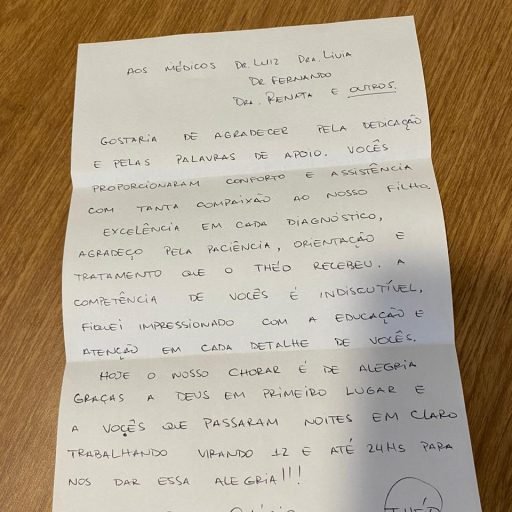 AOS MÉDICOS DR. LUIZ DRA. LIVIA
DR FERNANDO
DRA. RENATA E OUTROS.
GOSTARIA DE AGRADECER PELA DEDICAÇÃO
E PELAS PALAVRAS DE APOIO. VOCÊS
PROPORCIONARAM CONFORTO E ASSISTÊNCIA
COM TANTA COMPAIXÃO AO NOSSO FILHO.
EXCELÊNCIA EM CADA DIAGNÓSTICO,
AGRADEÇO PELA PACIÊNCIA, ORIENTAÇÃO E
TRATAMENTO QUE O THÉO RECEBEU. A
COMPETÊNCIA DE VOCÊS É INDISCUTÍVEL,
FIQUEI IMPRESSIONADO COM A EDUCAÇÃO E
ATENÇÃO EM CADA DETALHE DE VOCÊS.
HOJE O NOSSO CHORAR É DE ALEGRIA
GRAÇAS A DEUS EM PRIMEIRO LUGAR E
A VOÇÊS QUE PASSARAM NOITES EM CLARO
TRABALHANDO VIRANDO 12 E ATÉ 24HS PARA
NOS DAR ESSA ALEGRIA!!!
THÉO